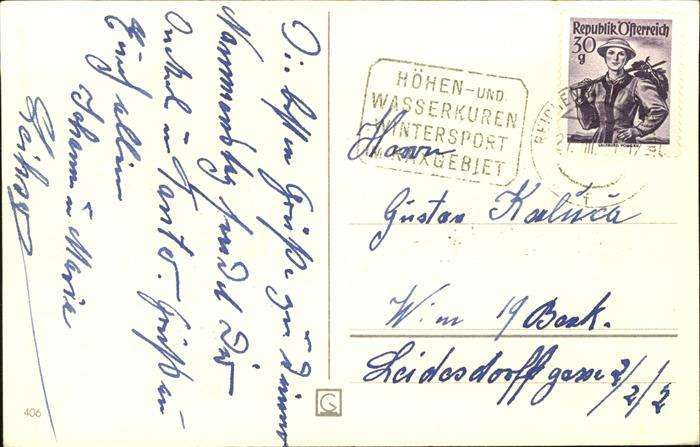 Die besten Grüße zu Deinem
Namenstag sendet Dir
Onkel u Tante. Grüße an
Euch allen
Johann u Marie
406
HÖHEN- UND
WASSERKUREN
WINTERSPORT
IM RAXGEBIET
Republik Österreich
30
g
REICHENAU
Herrn
Gustav
Wien 19 Bez.
Leidesdorffgasse 2/2/2
G